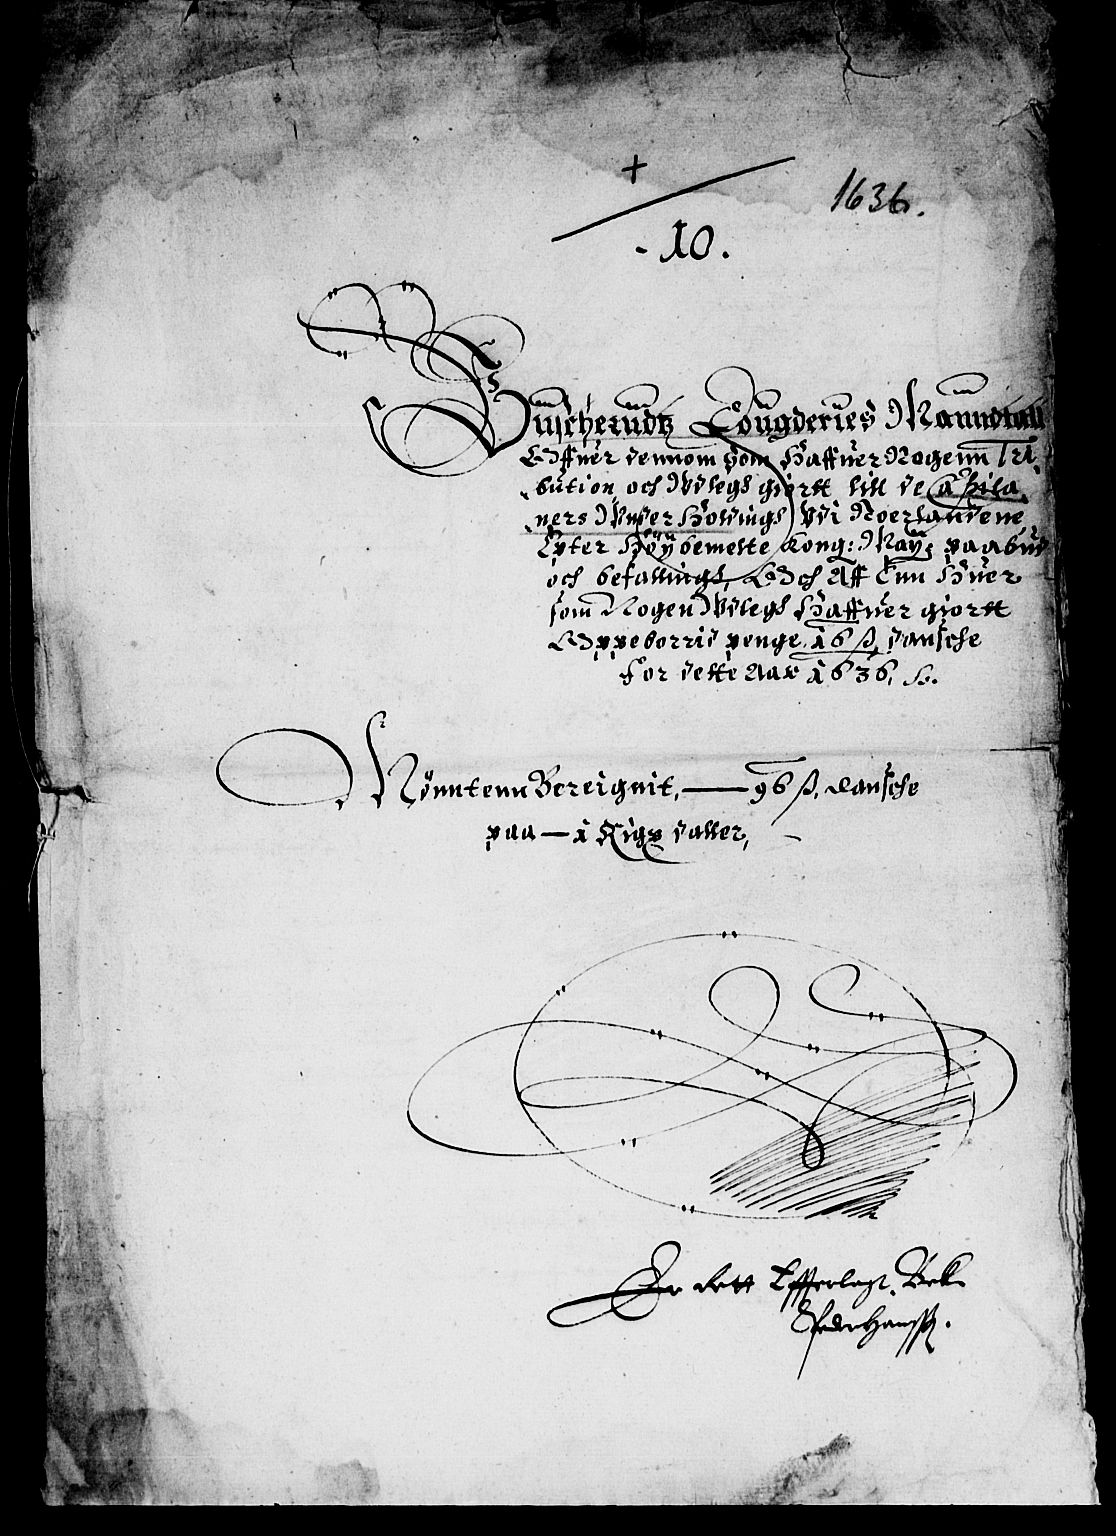 +
1636.
- 10.
Buscheruds Fougderies Manndtall
Offuer dennom som Haffuer Nogenn Tri-
bution och Udlegs giortt till de Aszila-
ners Unnderholdings Udi Noerlandene
Epter Høybemelte Kong: May: paabud
och befallings, Och Aff Enn Huer
som Nogen Udlegs Haffuer giortt
Oppeborrid penge 16 ß dansche
For dette Aar 1636,
Mønntenn Beregnit, — 96 ß, dansche
paa — 1 Rigs daller,
Er dett Offuerlagt.
Peder Hanss